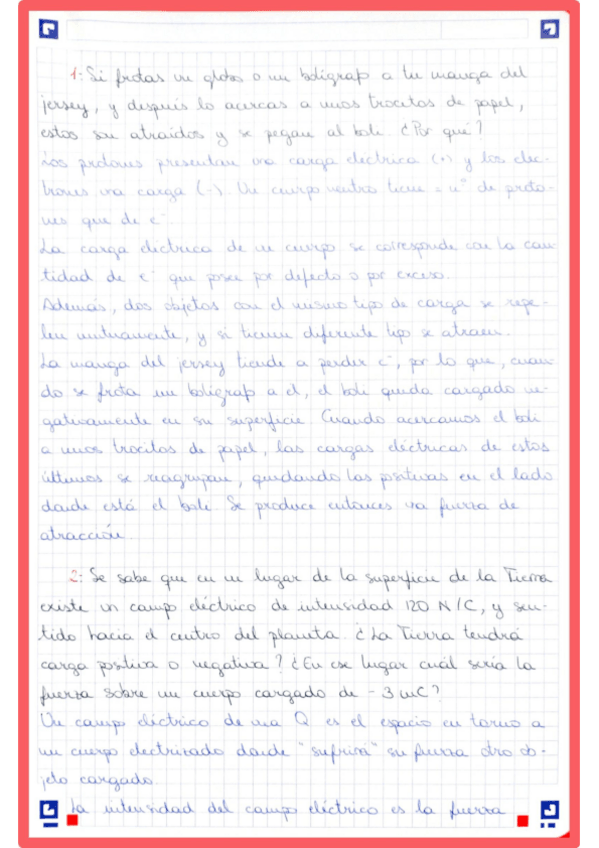 1: Si frotas un globo o un bolígrafo a tu manga del
jersey, y después lo acercas a unos trocitos de papel,
estos son atraídos y se pegan al boli. ¿Por qué?
Los protones presentan una carga eléctrica (+) y los elec-
trones una carga (-). Un cuerpo neutro tiene = nº de proto-
nes que de e⁻.
La carga eléctrica de un cuerpo se corresponde con la can-
tidad de e⁻ que posee por defecto o por exceso.
Además, dos objetos con el mismo tipo de carga se repe-
len mutuamente, y si tienen diferente tipo se atraen.
La manga del jersey tiende a perder e⁻, por lo que, cuan-
do se frota un bolígrafo a el, el boli queda cargado ne-
gativamente en su superficie. Cuando acercamos el boli
a unos trocitos de papel, las cargas eléctricas de estos
últimos se reagrupan, quedando las positivas en el lado
donde está el boli. Se produce entonces una fuerza de
atracción.
2: Se sabe que en un lugar de la superficie de la Tierra
existe un campo eléctrico de intensidad 120 N/C, y sen-
tido hacia el centro del planeta. ¿La Tierra tendrá
carga positiva o negativa? ¿En ese lugar cuál sería la
fuerza sobre un cuerpo cargado de -3 mC?
Un campo eléctrico de una Q es el espacio en torno a
un cuerpo electrizado donde "sufrirá" su fuerza otro ob-
jeto cargado.
La intensidad del campo eléctrico es la fuerza